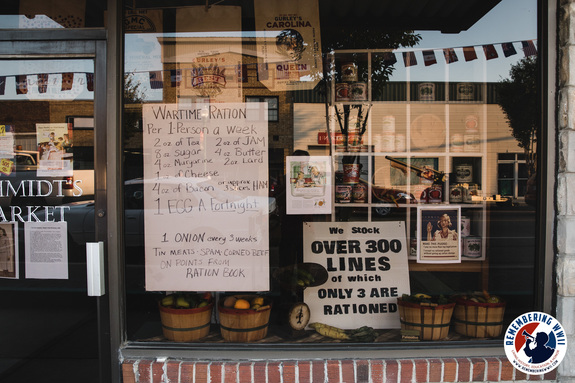 GURLEY'S
CAROLINA
QUEEN
HMIDT'S
ARKET
WARTIME RATION
Per 1 Person a Week
2 oz of Tea 2 oz of JAM
8 oz Sugar 4 oz Butter
4 oz Margarine 2 oz Lard
1 oz of Cheese
4 oz of Bacon or approx 3½ ozs HAM
1 EGG A Fortnight
1 ONION every 3 weeks
TIN MEATS - SPAM - CORNED BEEF
ON POINTS FROM
RATION BOOK
We Stock
OVER 300
LINES
of which
ONLY 3 ARE
RATIONED
REMEMBERING WWII
WWW.REMEMBERINGWWII.COM